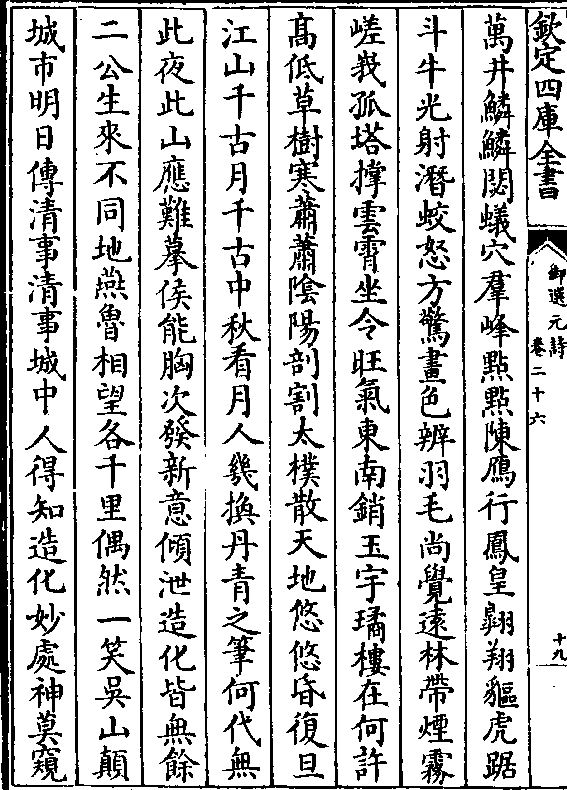 欽定四庫全書
御選元詩
卷二十六
十九
萬井鱗鱗閟蟻穴羣峰點點陳鴈行鳳皇翺翔貙虎踞
斗牛光射潛蛟怒方驚晝色辨羽毛尚覺遠林帶煙霧
嵯峩孤塔撑雲霄坐令旺氣東南銷玉宇璚樓在何許
髙低草樹寒蕭蕭陰陽剖割太樸散天地悠悠昏復旦
江山千古月千古中秋看月人幾換丹青之筆何代無
此夜此山應難摹侯能胸次發新意傾泄造化皆無餘
二公生來不同地燕魯相望各千里偶然一笑吳山顛
城市明日傳清事清事城中人得知造化妙處神莫窺